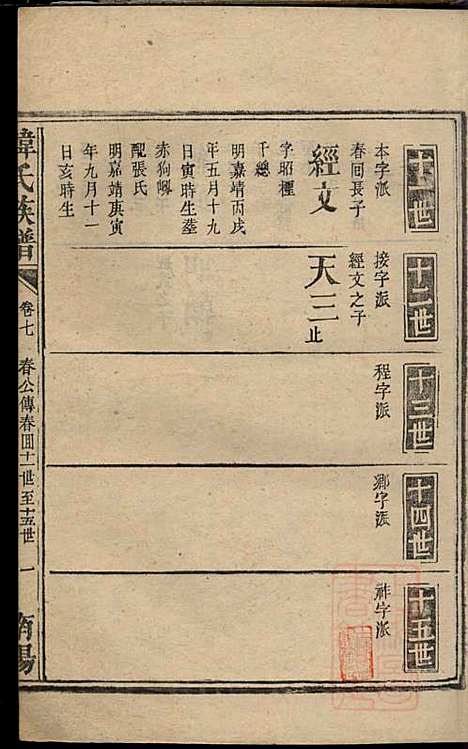 十一世
本字派
春囘長子
經文
字昭樫
千總
明嘉靖丙戌
年五月十九
日寅時生墓
赤狗𡶶
配張氏
明嘉靖庚寅
年九月十一
日亥時生
十二世
接字派
經文之子
天三止
十三世
程字派
十四世
鄉字派
十五世
祚字派
韓氏族譜
卷七
春公傳春囘十一世至十五世
一
南陽